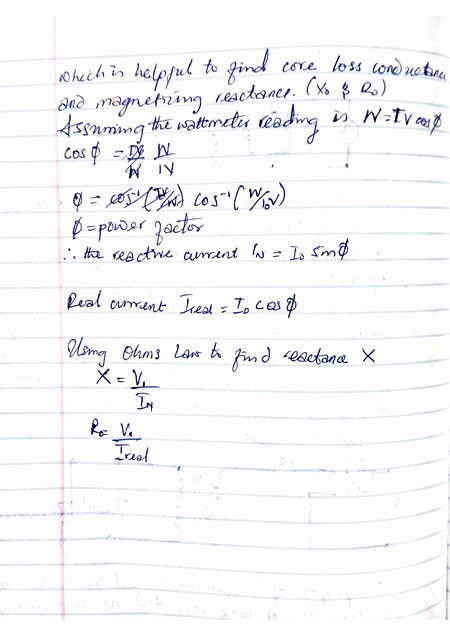 which is helpful to find core loss conductance
and magnetizing reactance. (X₀ & R₀)
Assuming the wattmeter reading is W = IV cosϕ
cosϕ = W/IV
ϕ = cos⁻¹(W/I₀V)
ϕ = power factor
∴ the reactive current I_N = I₀ sinϕ
Real current I_real = I₀ cosϕ
Using Ohms Law to find reactance X
X = V₁/I_N
R₀ = V₁/I_real